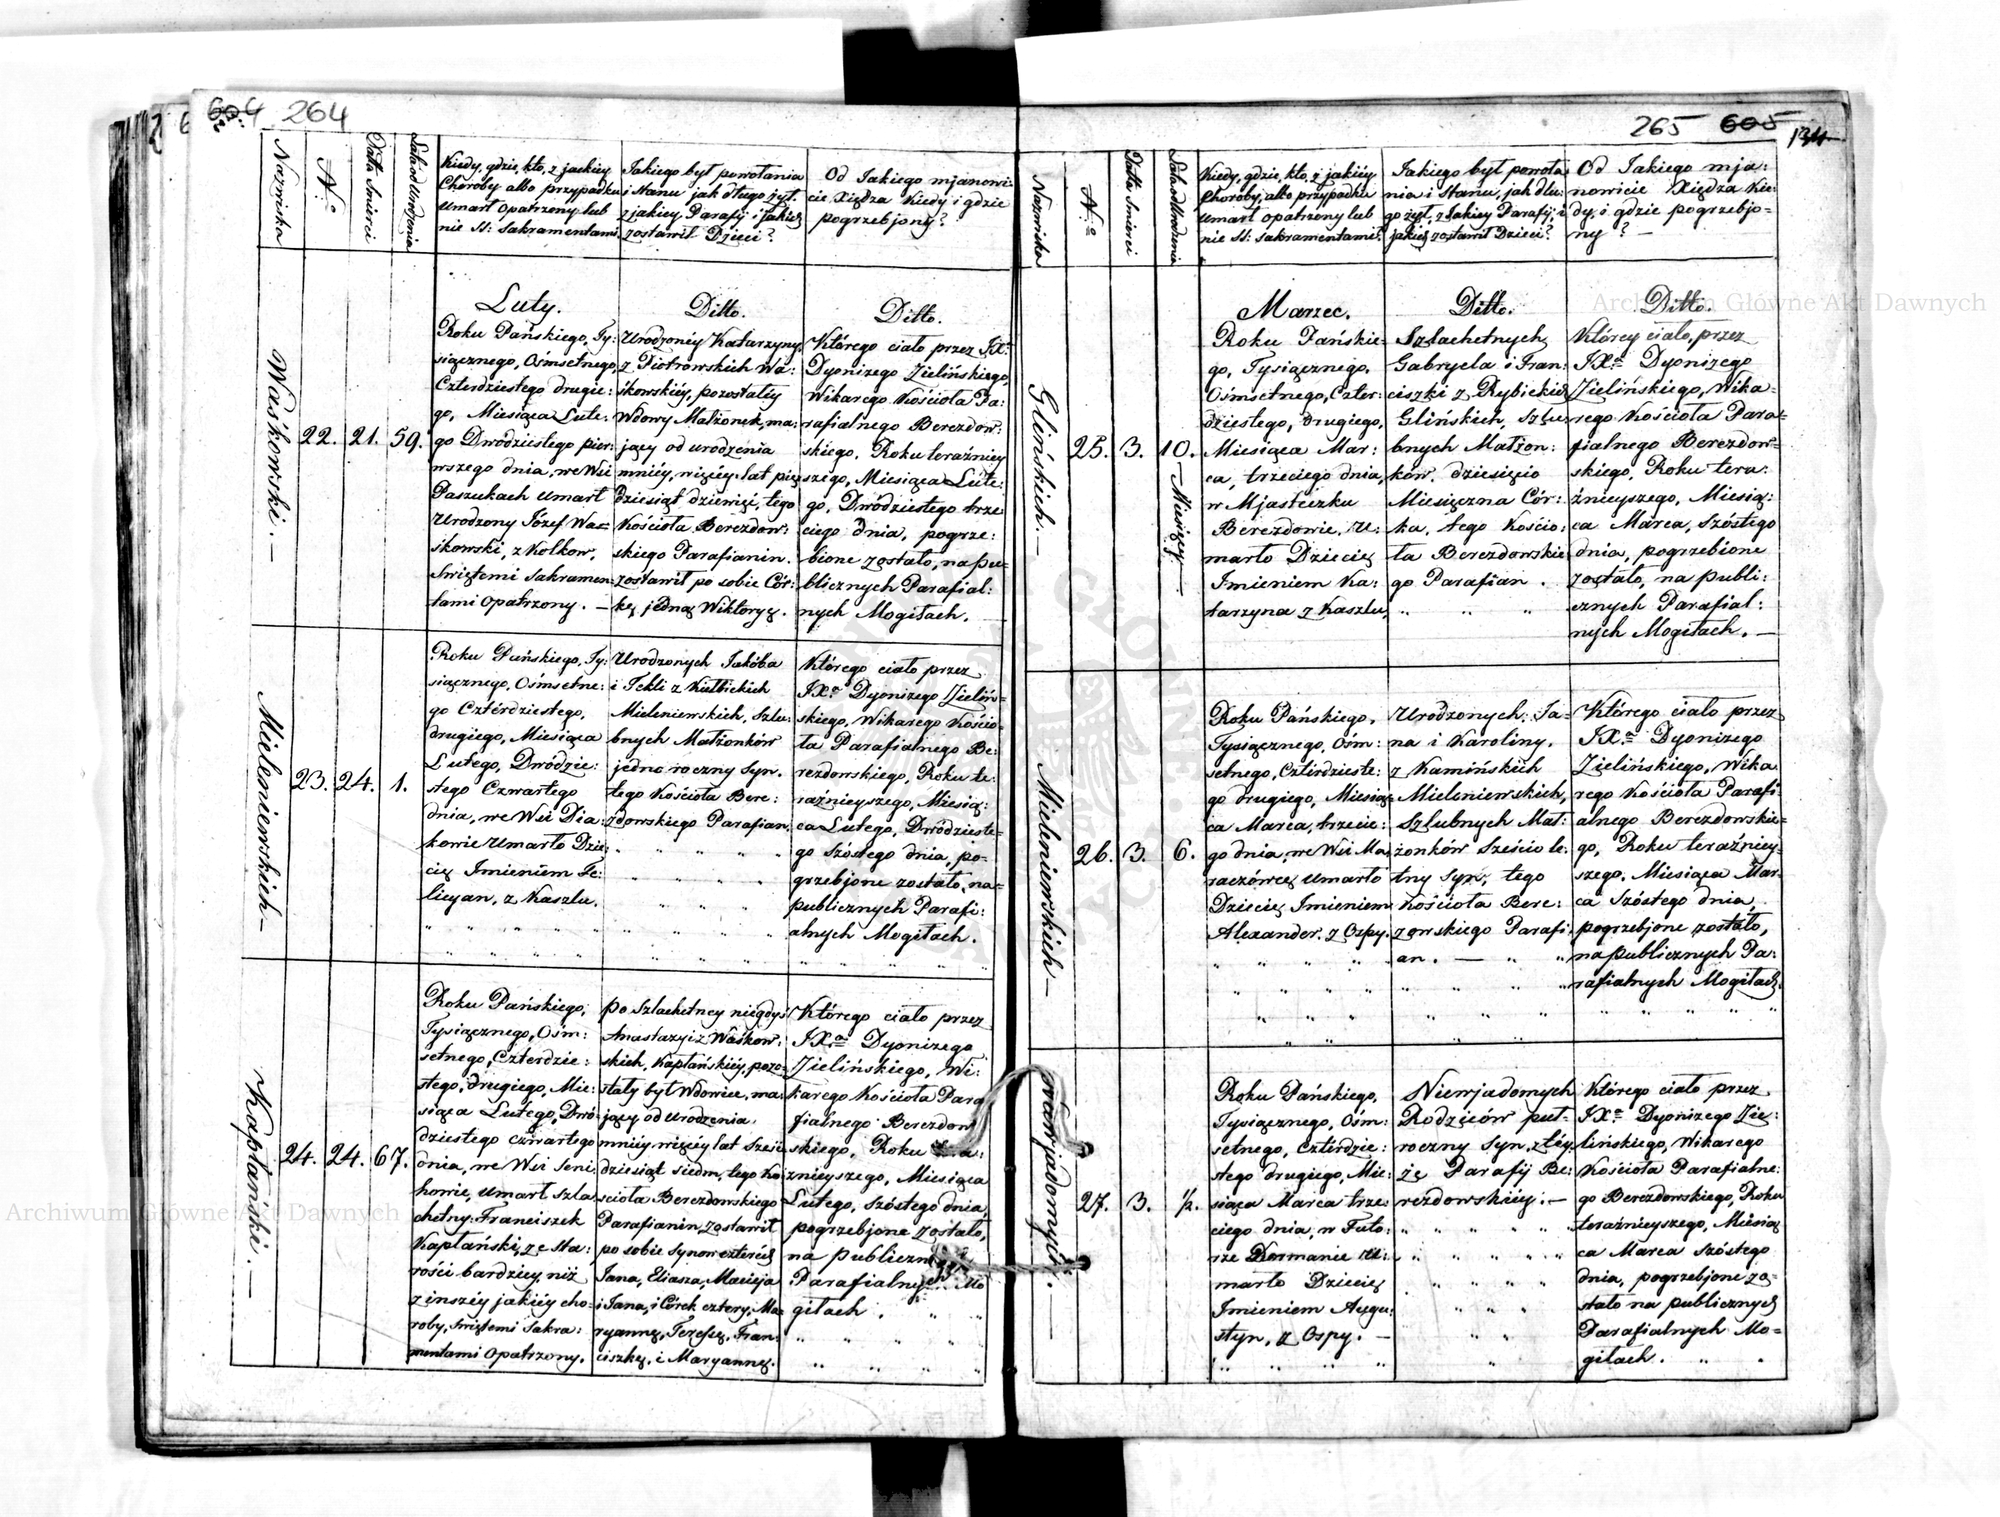 604 264
Nazwiska
N.o
Data Śmierci
Lata od Urodzenia
Kiedy, gdzie, kto, z jackiey
Choroby albo przypadku
umarł opatrzony lub
nie SS: Sakramentami.
Jakiego był powołania
i Stanu jak długo żył.
z jakiey Parafij i jakieś
zostawił Dzieci?
Od Jakiego mjanowi=
cie, Xiędza Kiedy i gdzie
pogrzebjony?
Waśkowski. —
22. 21. 59.
Luty.
Roku Pańskiego, Ty:
siącznego, Ośmsetnego,
Czterdziestego drugie:
go, Miesiąca Lute:
go Dwódziestego pier:
wszego dnia, we Wsi
Paszukach umarł
Urodzony Józef Wa=
śkowski, z Kolkow,
Swiętemi Sakramen=
tami Opatrzony. —
Ditto.
Urodzoney Katarzyny
z Piotrowskich Wa:
śkowskiéy, pozostałey
Wdowy Małżonek, ma:
jący od urodzenia
mniéy, więcéy lat pięć
dziesiąt dziewięć, tego
Kościoła Berezdow:
skiego Parafianin.
zostawił po sobie Cór:
kę jedną Wiktoryę.
Ditto.
Którego ciało przez JX:
Dyonizego Zielińskiego,
Wikarego Kościoła Pa:
rafialnego Berezdow:
skiego, Roku teraźniey
szego, Miesiąca Lute:
go, Dwódziestego trze
ciego dnia, pogrze:
bione zostało, na pu=
blicznych Parafial:
nych Mogiłach. —
Mieleniewskich —
23. 24. 1.
Roku Pańskiego, Ty:
siącznego, Ośmsetne:
go Cztérdziestego,
drugiego, Miesiąca
Lutego, Dwódzie:
stego Czwartego
dnia, we Wsi Dia:
kowie Umarło Dzie:
cię Imieniem Fe:
licyan, z Kaszlu.
Urodzonych Jakóba
i Tekli z Kiełbickich
Mieleniewskich, Szlu:
bnych Małżonków
jedno roczny Syn.
tego Kościoła Bere:
zdowskiego Parafian.
Którego ciało przez
JXa Dyonizego Zieliń=
skiego, Wikarego Kościo=
ła Parafialnego Be:
rezdowskiego, Roku te:
raźnieyszego, Miesią:
ca Lutego, Dwódzieste=
go Szóstego dnia, po=
grzebjone zostało, na=
publicznych Parafi:
alnych Mogiłach.
Kapłański. —
24. 24. 67.
Roku Pańskiego;
Tysiącznego, Ośm:
setnego, Czterdzie:
stego, drugiego, Mie:
siąca Lutego, Dwó
dziestego czwartego
dnia, we Wsi Seni
howie, umarł Szla
chetny: Franciszek
Kapłański, ze Sta:
rości bardziey, niż
z inszéy jakiéy cho:
roby, Swiętemi Sakra:
mentami Opatrzony.
po Szlachetney niegdyś
Anastazyi z Waśkow.
skich, Kapłańskiéy, pozo=
stały był Wdowiec, ma:
jący od Urodzenia
mniéy więcéy lat Sześć
dziesiąt siedm, tego Ko
ścioła Berezdowskiego
Parafianin, zostawił
po sobie Synow czterech
Jana, Eliasza, Macieja
i Jana, i Córek cztery, Ma
ryannę, Terefsę, Fran:
ciszkę, i Maryannę.
Którego ciało przez
JXa Dyonizego
Zielińskiego, Wi:
karego Kościoła Para
fialnego Berezdow
skiego, Roku
znieyszego, Miesiąca
Lutego, Szóstego dnia,
pogrzebjone zostało,
na publiczn
Parafialnych Mo
giłach.
265 605 134
Nazwiska
N.o
Data Smierci
Lata od Urodzenia
Kiedy, gdzie, kto, z jakiéy
Choroby, albo przypadku
umarł opatrzony lub
nie SS: Sakramentami?
Jakiego był powoła
nia i Stanu, jak dłu:
go żył, z Jakiey Parafij, i
jakieś zostawił Dzieci?
Od Jakiego mja:
nowicie Xiędza Kie:
dy, i gdzie pogrzebjo=
ny? —
Glińskich. —
25. 3. 10. — Miesięcy —
Marzec.
Roku Pańskie=
go, Tysiącznego,
Ośmsetnego, Czter:
dziestego, drugiego,
Miesiąca Mar:
ca, trzeciego dnia,
w Mjasteczku
Berezdowie, u:
marło Dziecię
Imieniem Ka:
tarzyna z Kaszlu,
Ditto.
Szlachetnych
Gabryela i Fran:
ciszki z Rybickich
Glińskich, Szlu
bnych Małżon:
ków, dziesięcio
Miesięczna Cór:
ka, tego Kościo:
ła Berezdowskie
go Parafian.
Ditto.
Którey ciało, przez
JXa Dyonizego
Zielińskiego, Wika=
rego Kościoła Para=
fialnego Berezdow=
skiego, Roku tera:
źnieyszego, Miesią:
ca Marca, Szóstego
dnia, pogrzebione
zostało, na publi:
cznych Parafial:
nych Mogiłach. —
Mieleniewskich —
26. 3. 6.
Roku Pańskiego,
Tysiącznego, Ośm:
setnego, Cztérdzieste:
go drugiego, Miesią=
ca Marca, trzecie:
go dnia, we Wsi Ma
raczówce, umarło
Dziecię, Imieniem
Alexander. z Ospy.
Urodzonych. Ja=
na i Karoliny.
z Kamińskich
Mieleniewskich,
Szlubnych Mał:
żonków Sześcio le:
tny Syn, tego
Kościoła Bere:
zowskiego Parafi
an. —
Którego ciało przez
JXa Dyonizego
Zielińskiego, Wika
rego Kościoła Parafi
alnego Berezdowskie=
go, Roku teraźniey=
szego, Miesiąca Mar
ca Szóstego dnia
pogrzebjone zostało,
na publicznych Pa:
rafialnych Mogiłach.
Niewjadomych. —
27. 3. ½.
Roku Pańskiego,
Tysiącznego, Ośm:
setnego, Czterdzie:
stego drugiego, Mie:
siąca Marca trze:
ciego dnia, w Futo:
rze Kormanie u:
marło Dziecię
Imieniem Augu:
styn, z Ospy. —
Niewjadomych
Rodziców puł=
roczny Syn, z téy
żę Parafij Be:
rezdowskiéy. —
Którego ciało przez
JXa Dyonizego Zie:
lińskiego, Wikarego
Kościoła Parafialne:
go Berezdowskiego, Roku
teraźnieyszego, Miesią
ca Marca Szóstego
dnia, pogrzebjone zo=
stało na publicznych
Parafialnych Mo=
giłach.
Archiwum Główne Akt Dawnych
Archiwum Główne Akt Dawnych